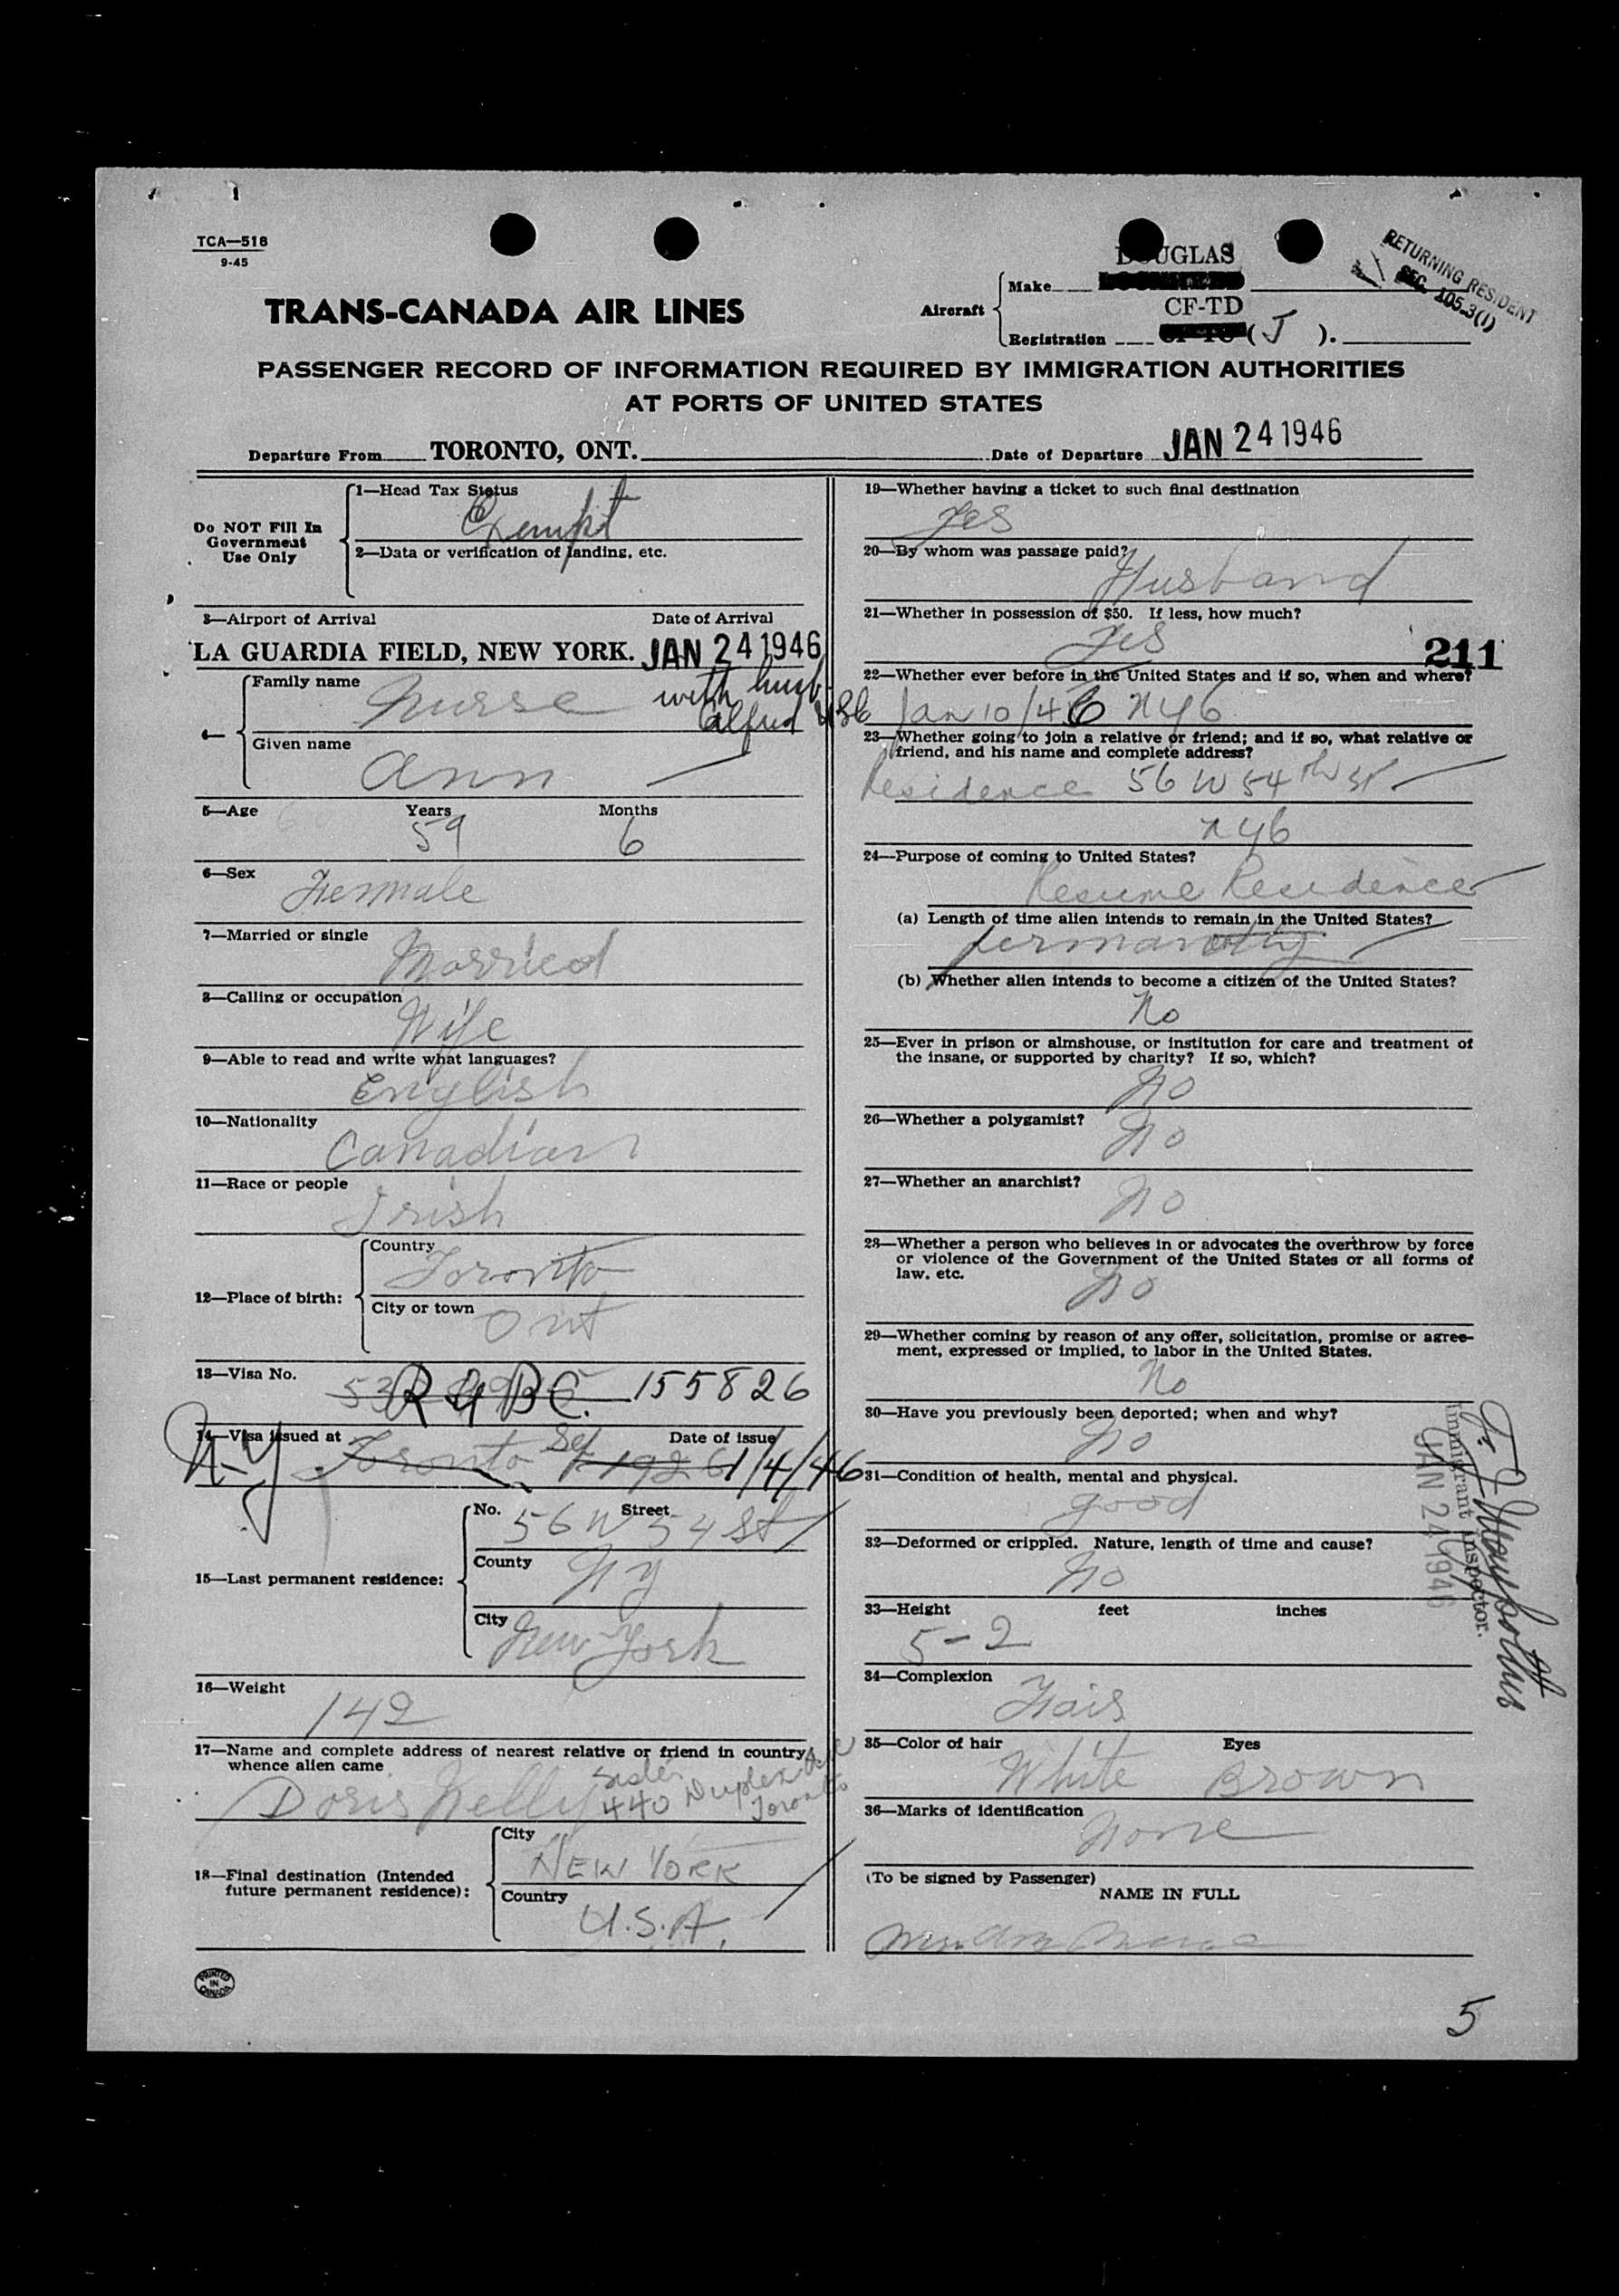 TCA—518
9-45
DOUGLAS
Make
RETURNING RESIDENT
SEC. 105.3(1)
TRANS-CANADA AIR LINES
Aircraft
CF-TD
Registration (J).
PASSENGER RECORD OF INFORMATION REQUIRED BY IMMIGRATION AUTHORITIES
AT PORTS OF UNITED STATES
Departure From TORONTO, ONT.
Date of Departure JAN 24 1946
Do NOT Fill In
Government
Use Only
1—Head Tax Status
Exempt
2—Data or verification of landing, etc.
3—Airport of Arrival Date of Arrival
LA GUARDIA FIELD, NEW YORK. JAN 24 1946
4—
Family name
Nurse with husb
Alfred
Given name
Ann
5—Age Years Months
59 6
6—Sex
Female
7—Married or single
Married
8—Calling or occupation
Wife
9—Able to read and write what languages?
English
10—Nationality
Canadian
11—Race or people
Irish
12—Place of birth:
Country
Toronto
City or town
Ont
13—Visa No.
R 4 B C. 155826
14—Visa issued at Date of issue
N-Y Toronto Sep 1926 1/4/46
15—Last permanent residence:
No. Street
56 W 54 St
County
NY
City
New York
16—Weight
142
17—Name and complete address of nearest relative or friend in country
whence alien came
Doris Kelly sister
440 Duplex Ave
Toronto
18—Final destination (Intended
future permanent residence):
City
NEW YORK
Country
U.S.A.
PRINTED
IN
CANADA
19—Whether having a ticket to such final destination
Yes
20—By whom was passage paid?
Husband
21—Whether in possession of $50. If less, how much?
Yes
211
22—Whether ever before in the United States and if so, when and where?
Jan 10/46 NYC
23—Whether going to join a relative or friend; and if so, what relative or
friend, and his name and complete address?
Residence 56 W 54th St
NYC
24—Purpose of coming to United States?
Resume Residence
(a) Length of time alien intends to remain in the United States?
permanently
(b) Whether alien intends to become a citizen of the United States?
No
25—Ever in prison or almshouse, or institution for care and treatment of
the insane, or supported by charity? If so, which?
No
26—Whether a polygamist?
No
27—Whether an anarchist?
No
28—Whether a person who believes in or advocates the overthrow by force
or violence of the Government of the United States or all forms of
law, etc.
No
29—Whether coming by reason of any offer, solicitation, promise or agree-
ment, expressed or implied, to labor in the United States.
No
30—Have you previously been deported; when and why?
No
31—Condition of health, mental and physical.
good
32—Deformed or crippled. Nature, length of time and cause?
No
Immigrant Inspector.
JAN 24 1946
33—Height feet inches
5-2
34—Complexion
Fair
35—Color of hair Eyes
White Brown
36—Marks of identification
None
(To be signed by Passenger)
NAME IN FULL
Mrs. Ann Nurse
5